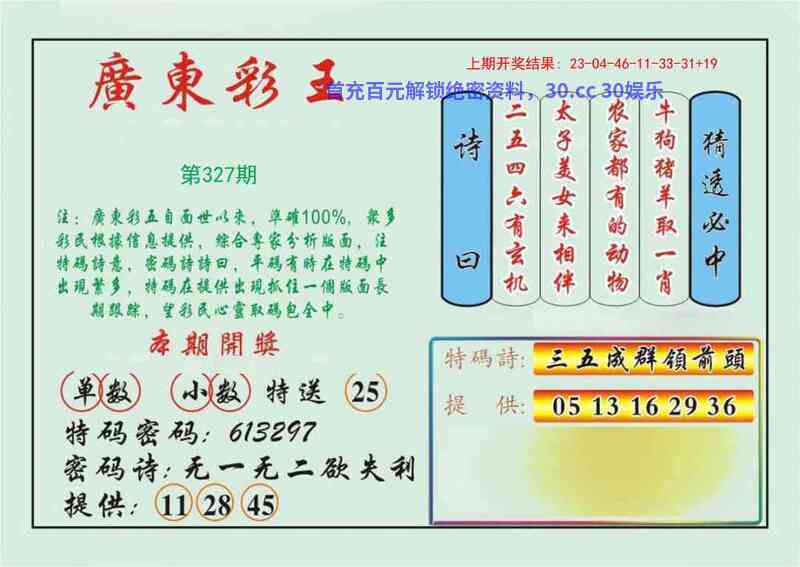 上期开奖结果：23-04-46-11-33-31+19
廣東彩王
首充百元解锁绝密资料，30.cc 30娱乐
第327期
注：廣東彩五自面世以來，準確100%，衆多
彩民根據信息提供，綜合專家分析版面，注
特碼詩意，密碼詩詩曰，平碼有時在特碼中
出現繁多，特碼在提供出現抓住一個版面長
期跟踪，望彩民心靈取碼包全中。
本期開獎
单数 小数 特送 25
特码密码：613297
密码诗：无一无二欲失利
提供：11 28 45
猜透必中
牛狗猪羊取一肖
农家都有的动物
太子美女来相伴
二五四六有玄机
诗曰
特碼詩：三五成群領前頭
提供：05 13 16 29 36